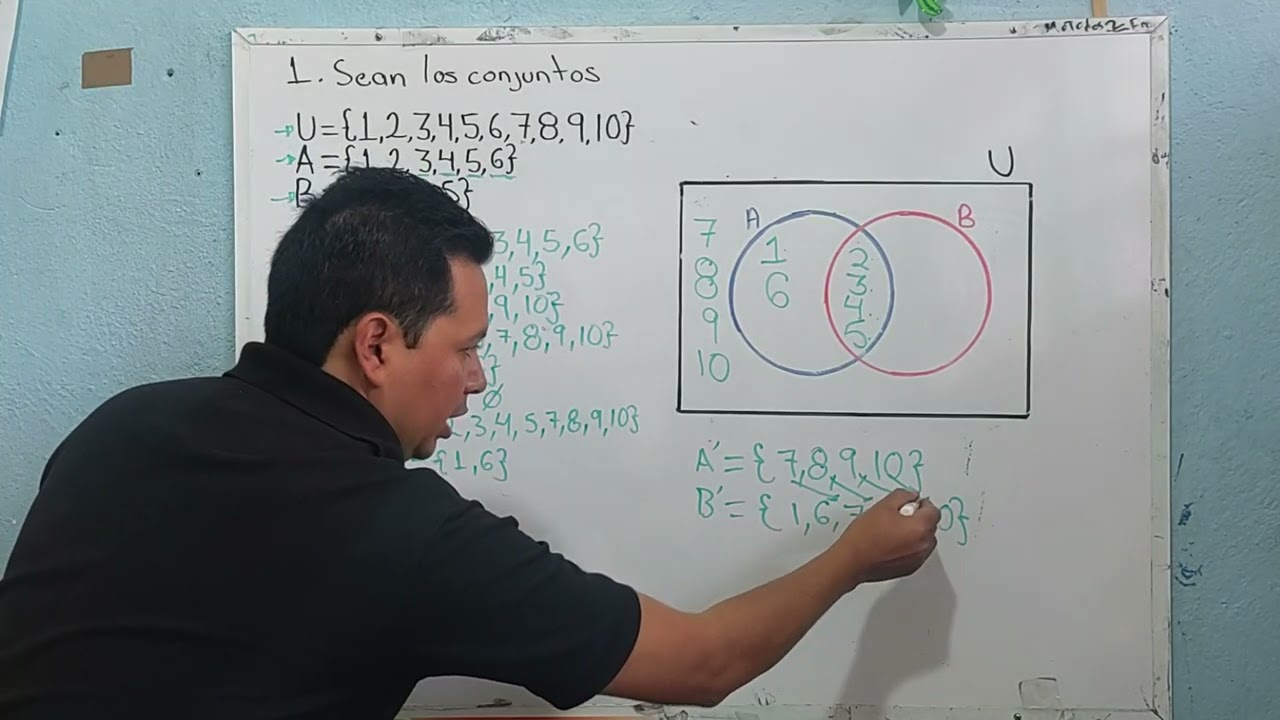 1. Sean los conjuntos
U={1,2,3,4,5,6,7,8,9,10}
A={1,2,3,4,5,6}
B 5}
3,4,5,6}
,4,5}
,9,10}
,7,8,9,10}
}
∅
,3,4,5,7,8,9,10}
{1,6}
U
A B
7
8
9
10
1
6
2
3
4
5
A'={7,8,9,10}
B'={1,6,7 0}